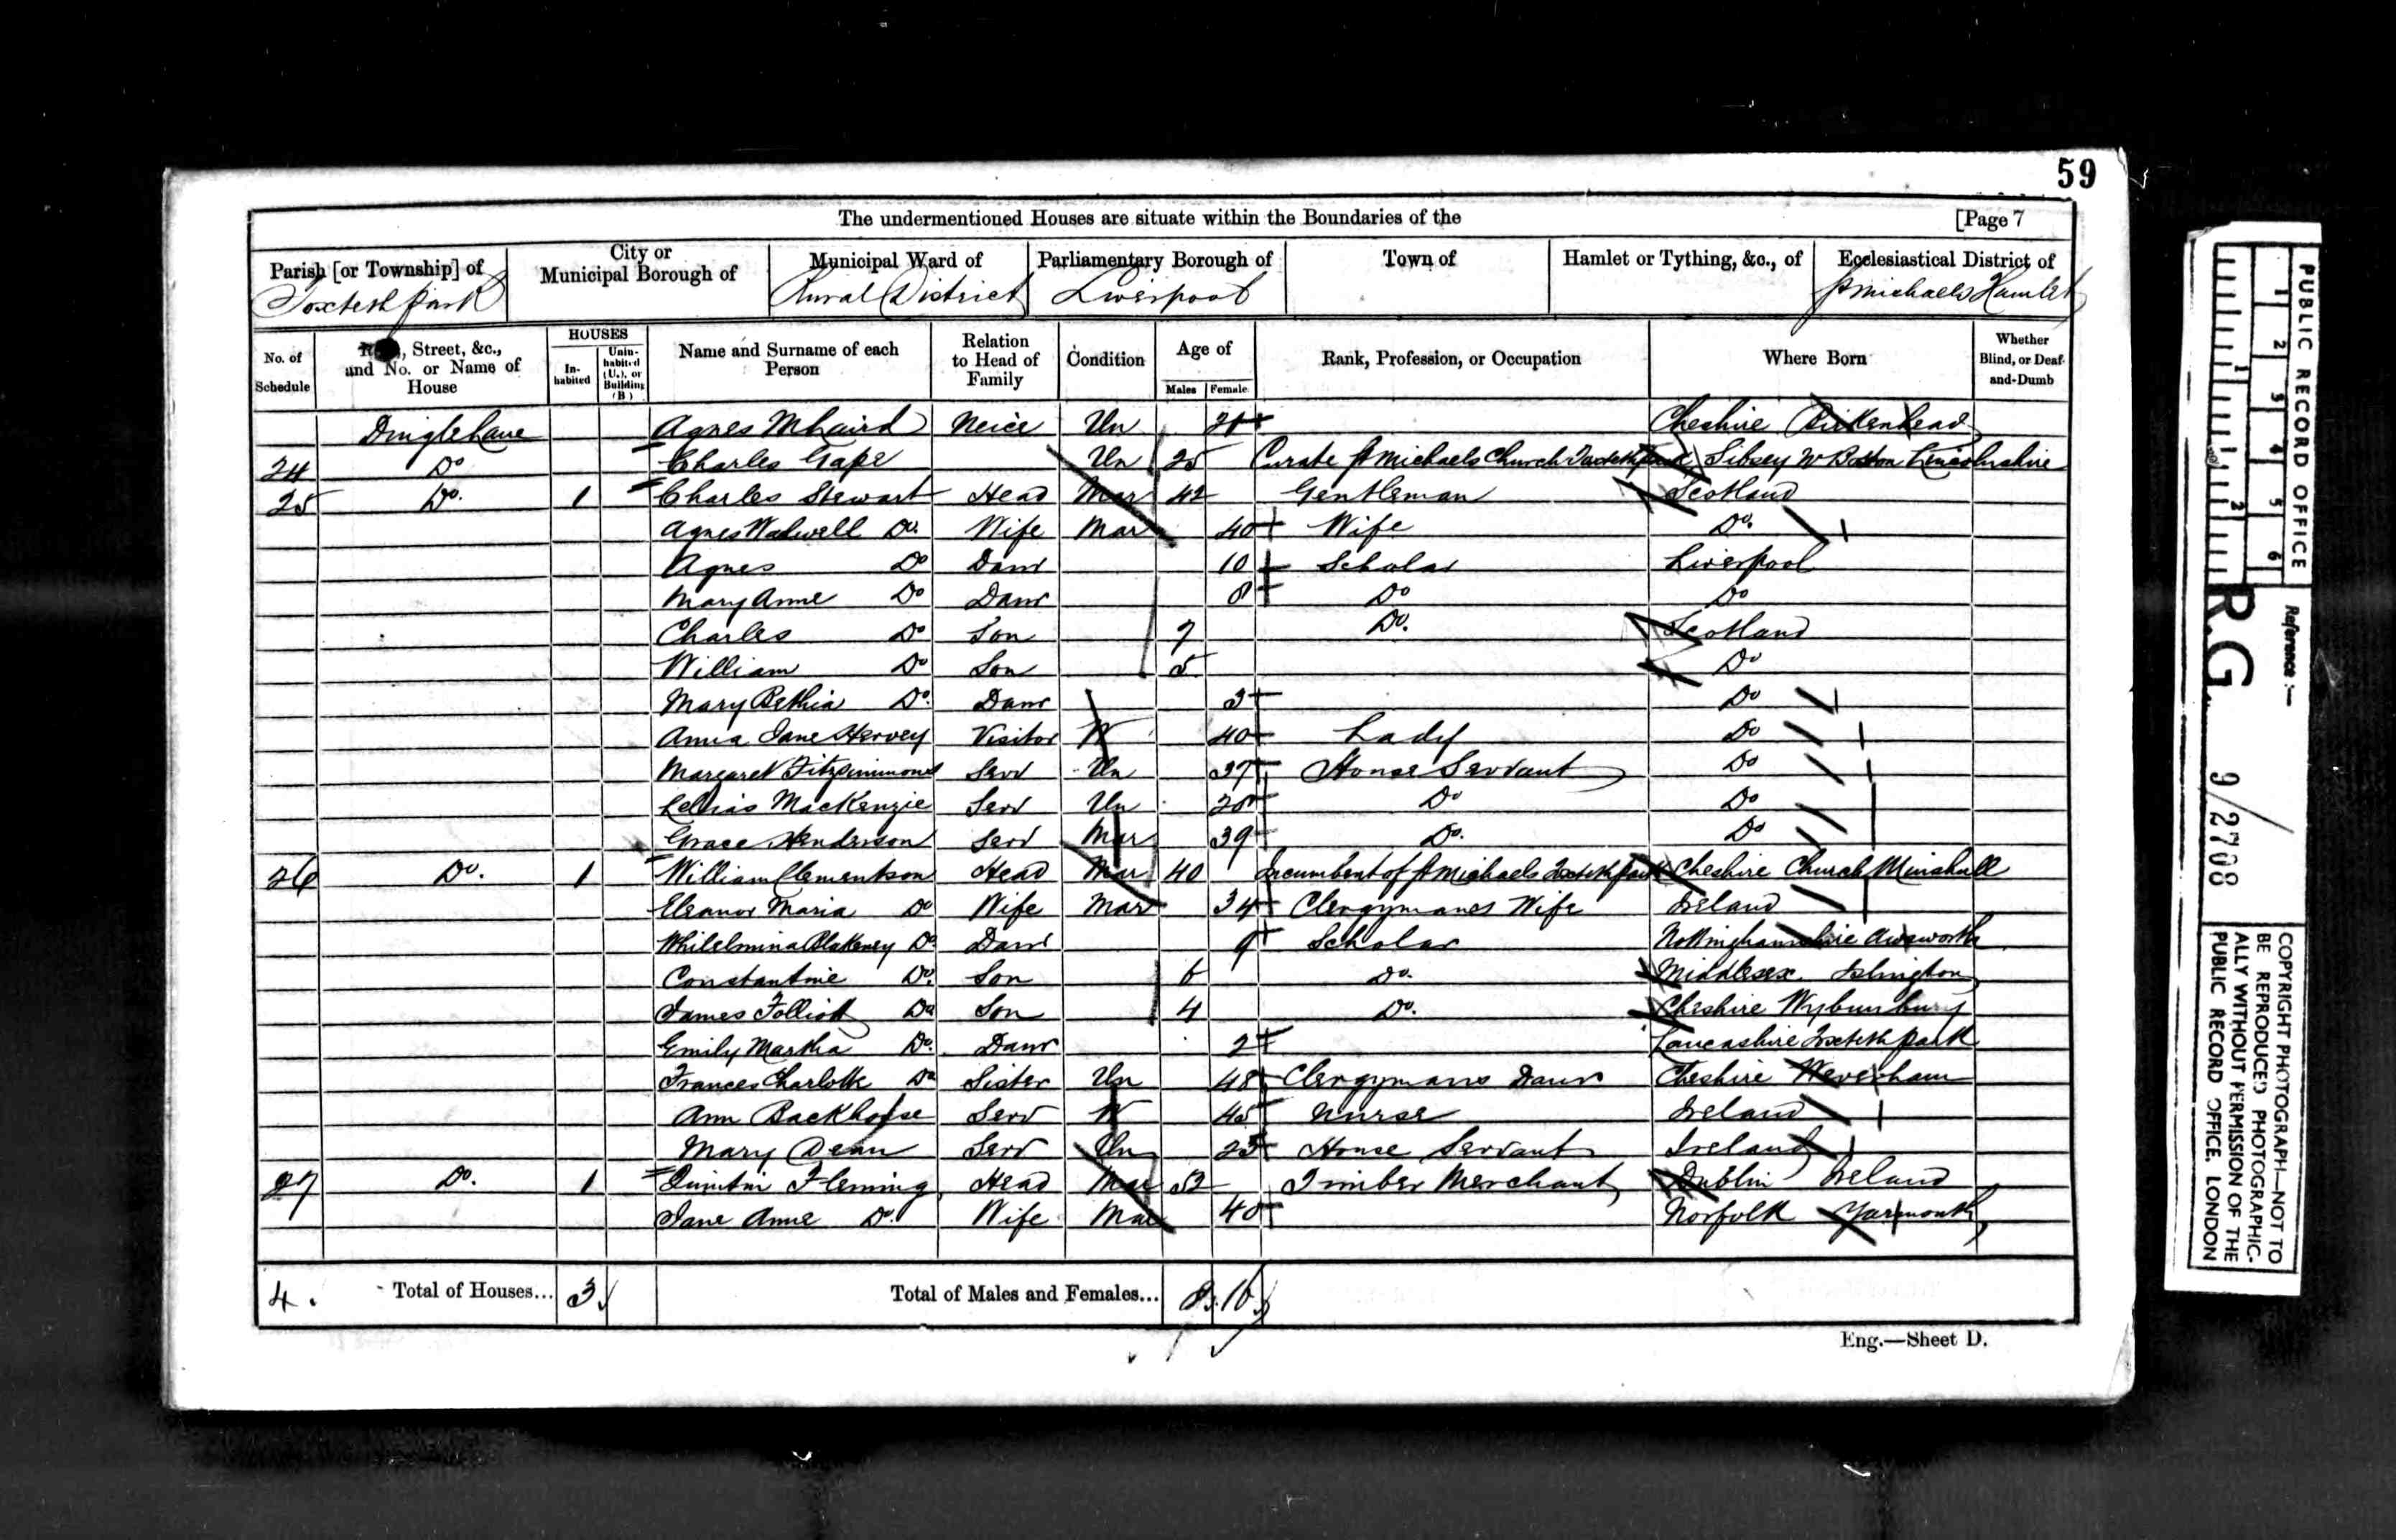 59
The undermentioned Houses are situate within the Boundaries of the [Page 7
Parish [or Township] of City or Municipal Borough of Municipal Ward of Parliamentary Borough of Town of Hamlet or Tything, &c., of Ecclesiastical District of
Toxteth Park Rural District Liverpool St Michaels Hamlet
No. of Schedule Street, &c., and No. or Name of House HOUSES In-habited Unin-habited (U.), or Building (B) Name and Surname of each Person Relation to Head of Family Condition Age of Males Female Rank, Profession, or Occupation Where Born Whether Blind, or Deaf-and-Dumb
Dingle Lane Agnes Neice Un Cheshire Birkenhead
24 Do Charles Gape Un 25 Curate St Michaels Church Toxteth park Sibsey Nr Boston Lincolnshire
25 Do. 1 Charles Stewart Head Mar 42 Gentleman Scotland
Agnes Do. Wife Mar 40 Wife Do.
Agnes Do Daur 10 Scholar Liverpool
Mary Anne Do Daur 8 Do Do
Charles Do Son 7 Do. Scotland
William Do Son 5 Do
Mary Bethia Do. Daur 3 Do
Anna Jane Hervey Visitor W 40 Lady Do
Margaret Fitzsimmons Serv Un 37 House Servant Do
MacKenzie Serv Un Do Do
Grace Henderson Serv Mar 39 Do. Do
26 Do. 1 William Clementson Head Mar 40 Incumbent of St Michaels Toxteth park Cheshire Church Minshull
Eleanor Maria Do Wife Mar 34 Clergymanes Wife Ireland
Whilelmina Blakeney Do Daur 9 Scholar Nottinghamshire Awsworth
Constantine Do. Son 6 Do. Middlesex Islington
James Folliott Do Son 4 Do. Cheshire Wybunbury
Emily Martha Do. Daur 2 Lancashire Toxteth park
Frances Charlotte Do Sister Un 48 Clergymans Daur Cheshire Weverham
Ann Backhouse Serv W 45 Nurse Ireland
Mary Dean Serv Un 25 House Servant Ireland
27 Do. 1 Fleming Head Mar 52 Timber Merchant Dublin Ireland
Jane Anne Do. Wife Mar Norfolk Yarmouth
4. Total of Houses... 3 Total of Males and Females...
Eng.—Sheet D.
PUBLIC RECORD OFFICE
1 2 3 4 5 6
1 2
Reference :—
R.G. 9/2708
COPYRIGHT PHOTOGRAPH—NOT TO
BE REPRODUCED PHOTOGRAPHIC-
ALLY WITHOUT PERMISSION OF THE
PUBLIC RECORD OFFICE. LONDON